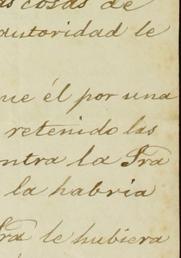 as cosas de
autoridad le
ue él por una
retenido las
ontra la Sra
la habria
Sra le hubiera